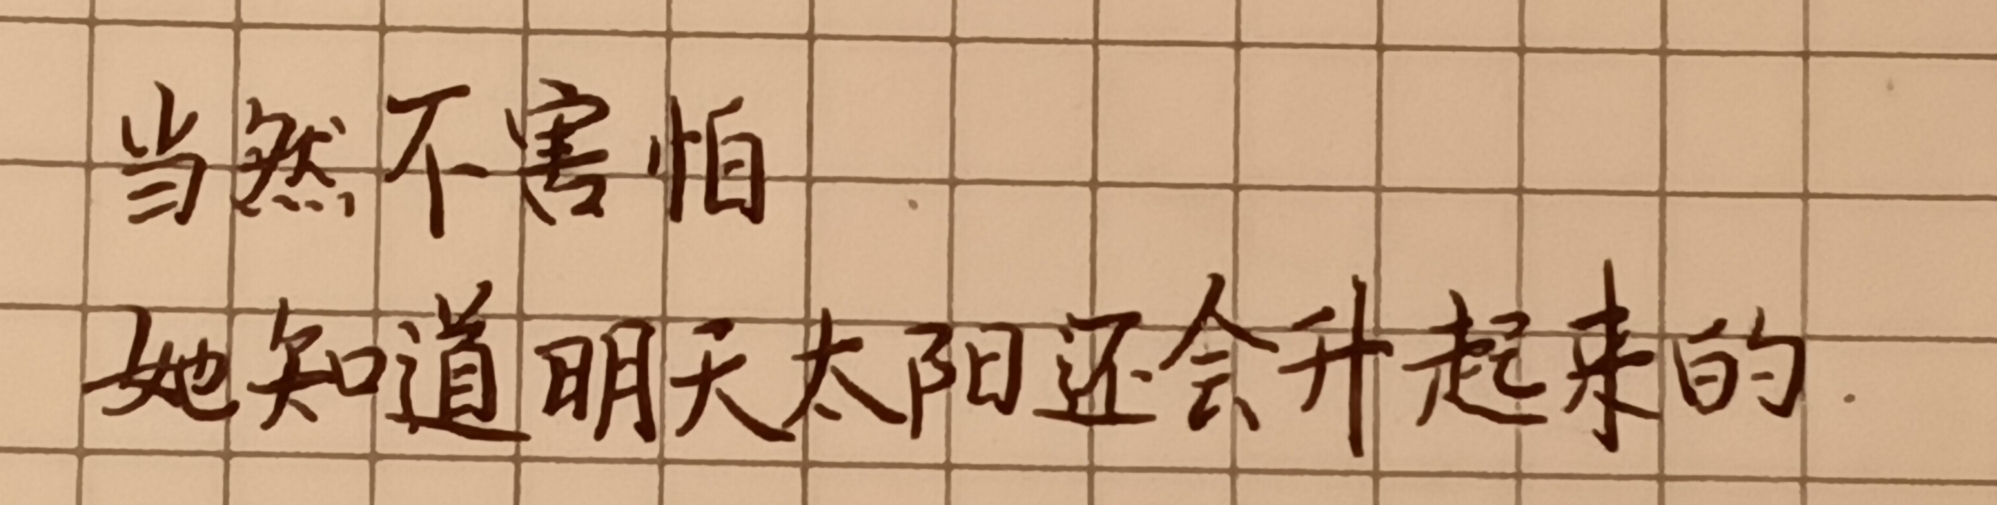 当然不害怕
她知道明天太阳还会升起来的.